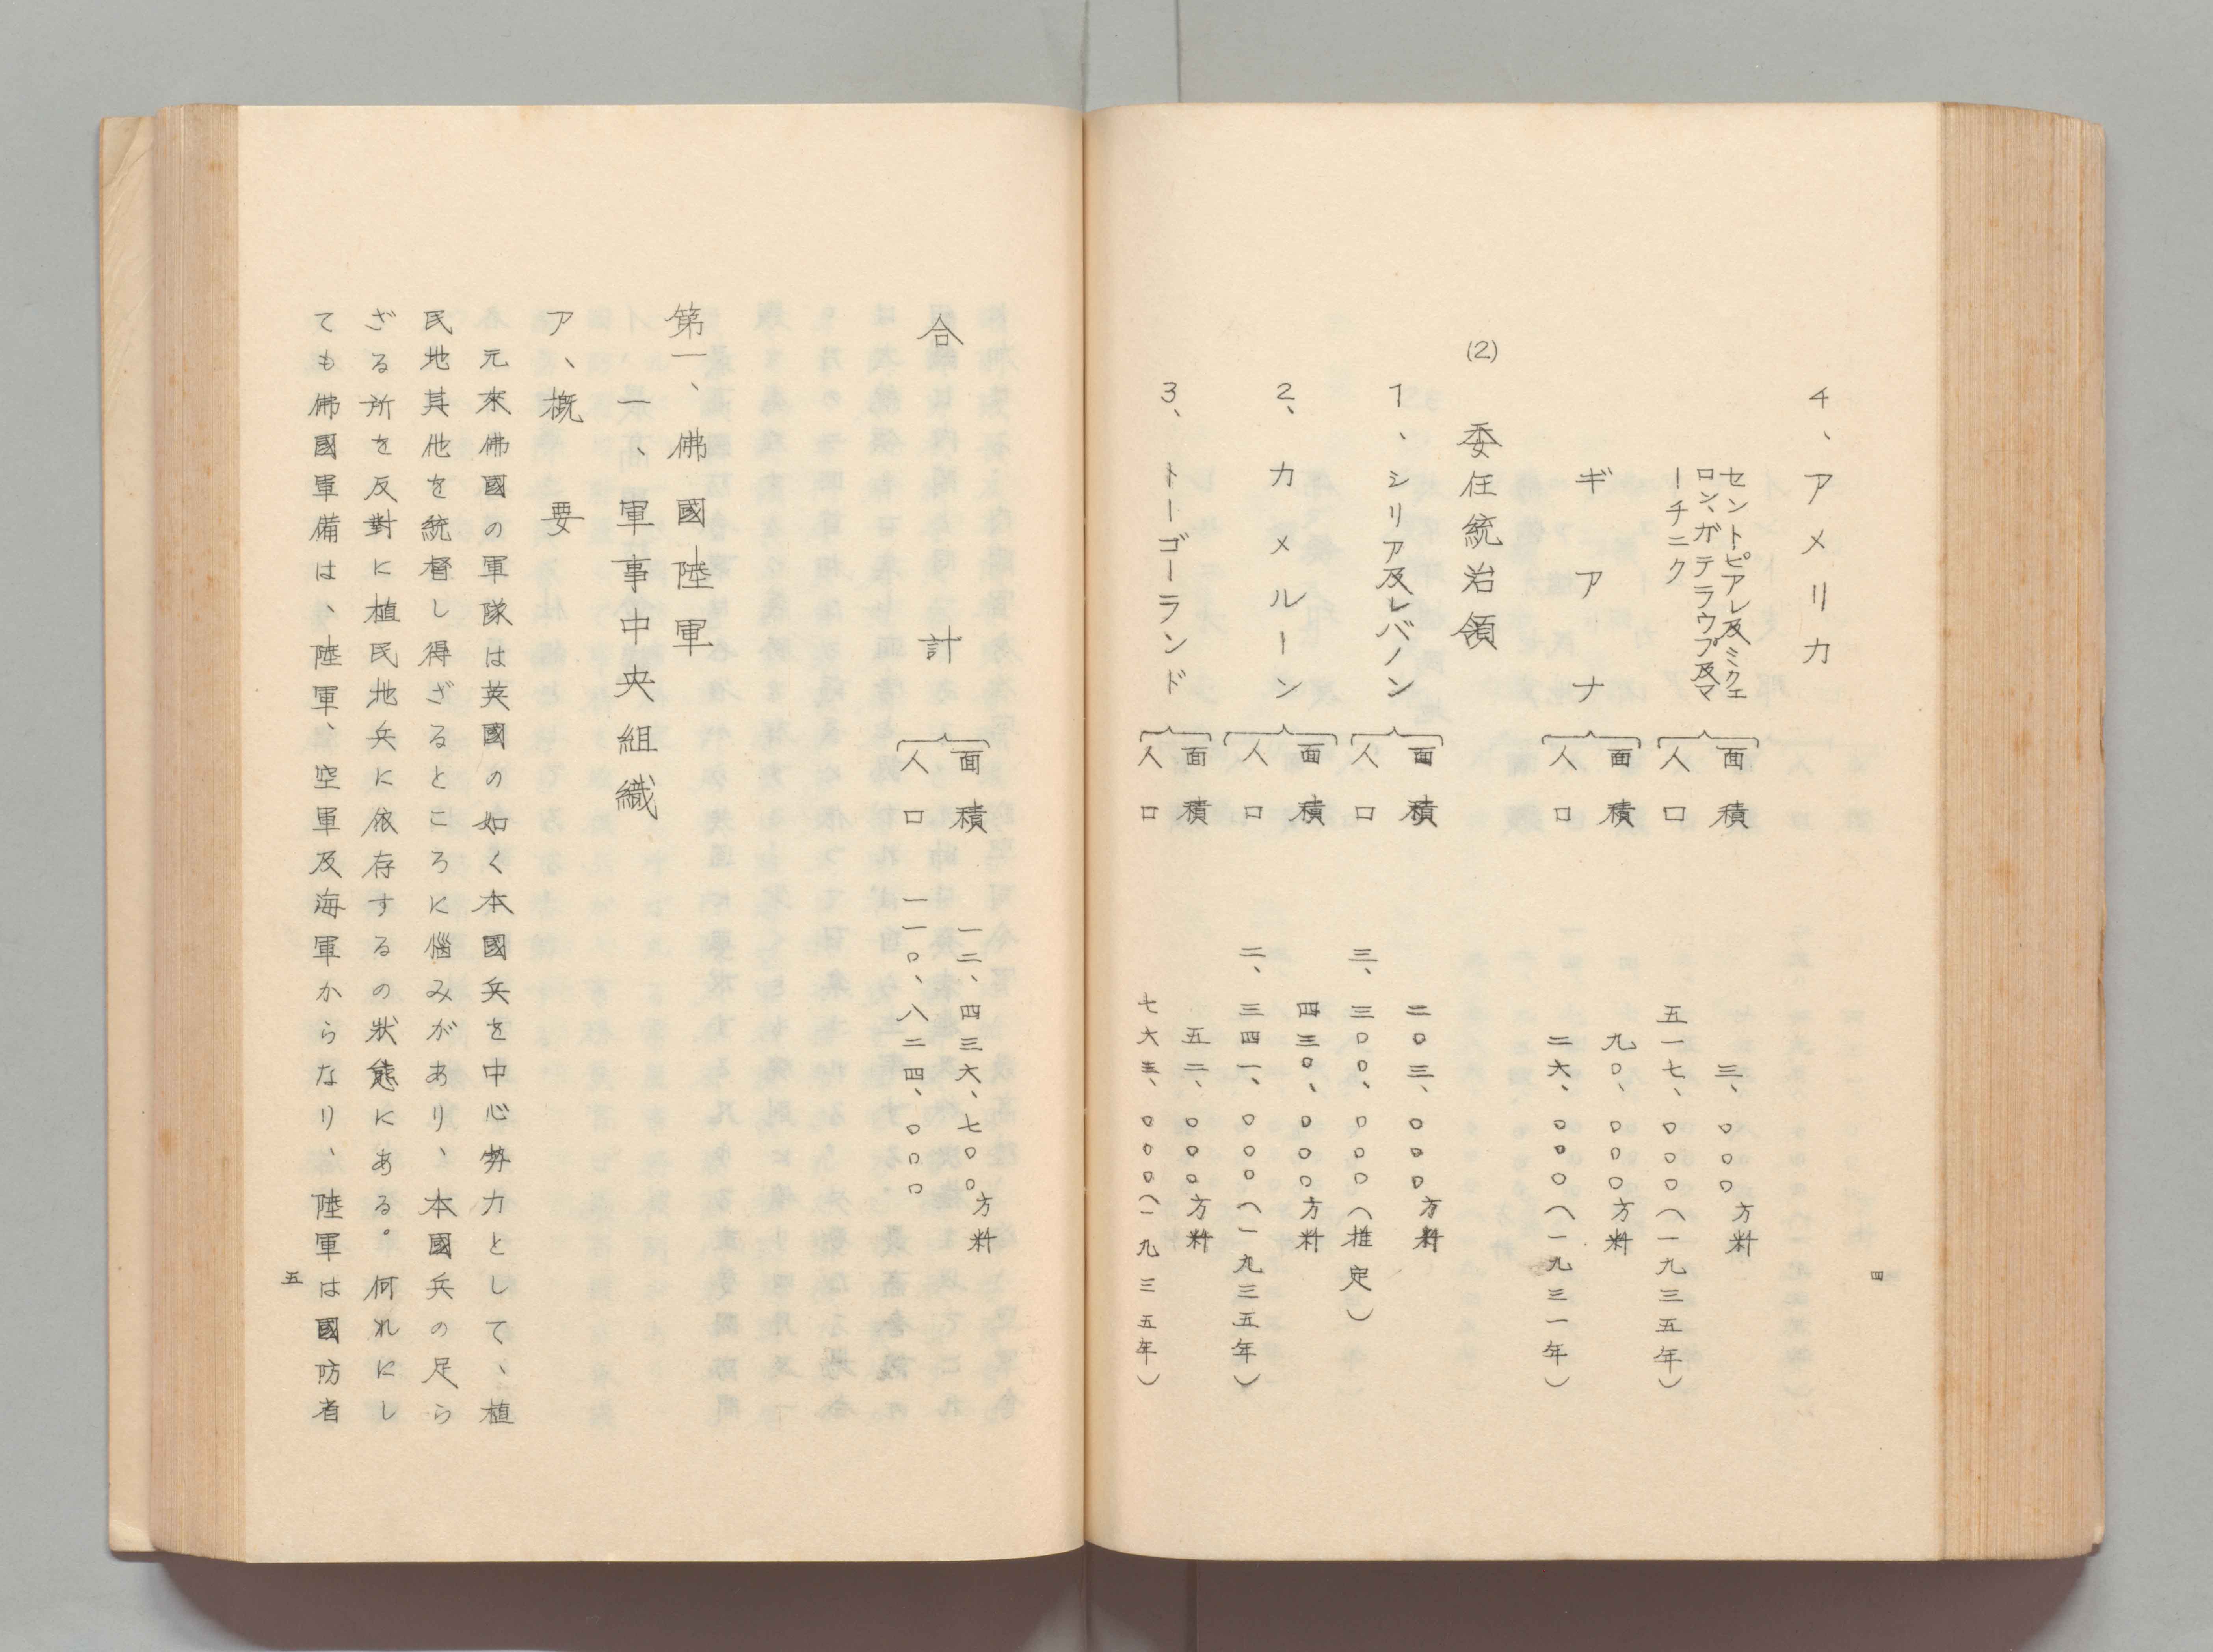 4、アメリカ
セントピアレ及ミクエ
ロン、ガテラウプ及マ
ーチニク
面積 三、〇〇〇方粁
人口 五一七、〇〇〇(一九三五年)
ギアナ
面積 九〇、〇〇〇方粁
人口 二六、〇〇〇(一九三一年)
(2) 委任統治領
1、シリア及レバノン
面積 二〇三、〇〇〇方粁
人口 三、三〇〇、〇〇〇(推定)
2、カメルーン
面積 四三〇、〇〇〇方粁
人口 二、三四一、〇〇〇(一九三五年)
3、トーゴーランド
面積 五二、〇〇〇方粁
人口 七六三、〇〇〇(一九三五年)
四
合計
面積 一二、四三六、七〇〇方粁
人口 一一〇、八二四、〇〇〇
第一、佛國陸軍
一、軍事中央組織
ア、概要
元來佛國の軍隊は英國の如く本國兵を中心勢力として、植
民地其他を統督し得ざるところに惱みがあり、本國兵の足ら
ざる所を反對に植民地兵に依存するの狀態にある。何れにし
ても佛國軍備は、陸軍、空軍及海軍からなり、陸軍は國防省
五